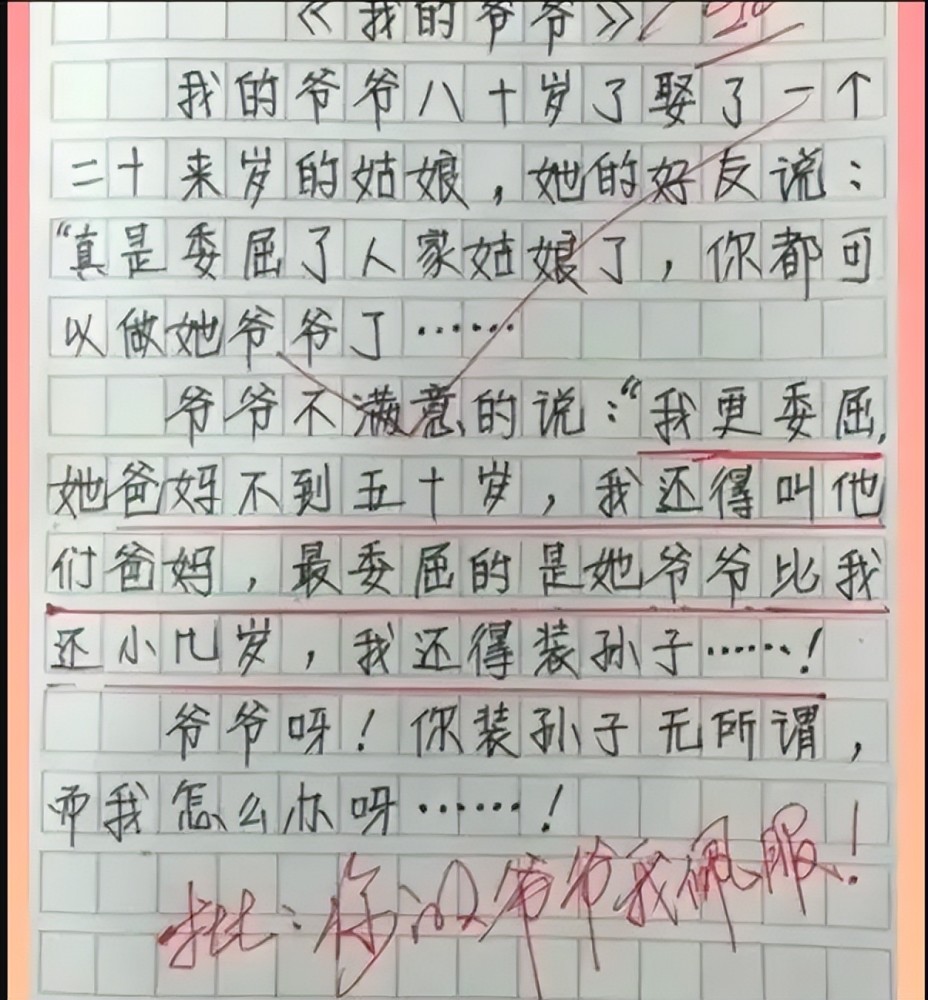 《我的爷爷》
我的爷爷八十岁了娶了一个
二十来岁的姑娘，她的好友说：
“真是委屈了人家姑娘了，你都可
以做她爷爷了……
爷爷不满意的说：“我更委屈，
她爸妈不到五十岁，我还得叫他
们爸妈，最委屈的是她爷爷比我
还小几岁，我还得装孙子……！
爷爷呀！你装孙子无所谓，
而我怎么办呀……！
批：你爷爷我佩服！